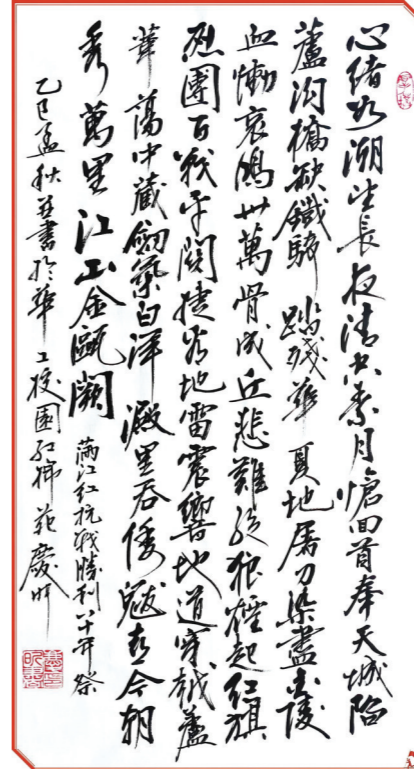 心緒如潮望長夜清空素月愴回首奉天城陷
蘆沟橋缺鐵騎踏殘華夏地屠刀染盡金陵
血慟哀鴻卅萬骨成丘悲難絕狼煙起红旗
烈團百戰平關捷看地雷震響地道穿越蘆
葦蕩中藏劍築白洋澱里吞倭寇喜今朝
秀萬里江山金甌闕
滿江红抗戰勝利八十年祭
乙巳孟秋並書於華工校園红